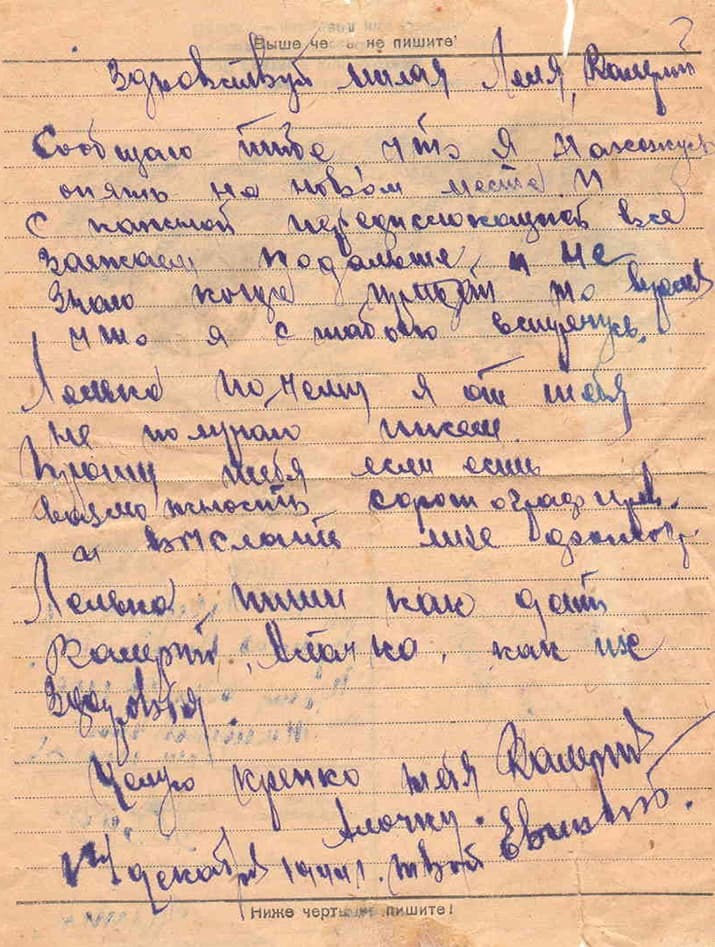 Выше че не пишите!
Здравствуй милая Леля, Валерий
Сообщаю тибе что я нахожусь
опять на новом месте и
с каждой передислокацией все
заежаем подальше, и не
знаю когда придет то время
что я с табою встречусь.
Лелька почему я от тебя
не получаю писем.
Прошу тебя если есть
возможность сфотографир.
и выслать мне фотокар.
Лелька пиши как дети
Валерий, Алочка, как их
здоровья.
Целую крепко тебя Валерия
Алочку.
декабря 1944г. твой Евгений.
Ниже черты не пишите!